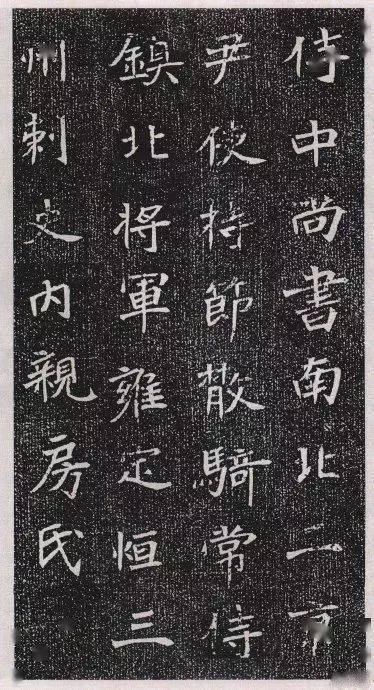 侍中尚書南北二京
尹使持節散騎常侍
鎮北將軍雍定恒三
州刺史内親房氏